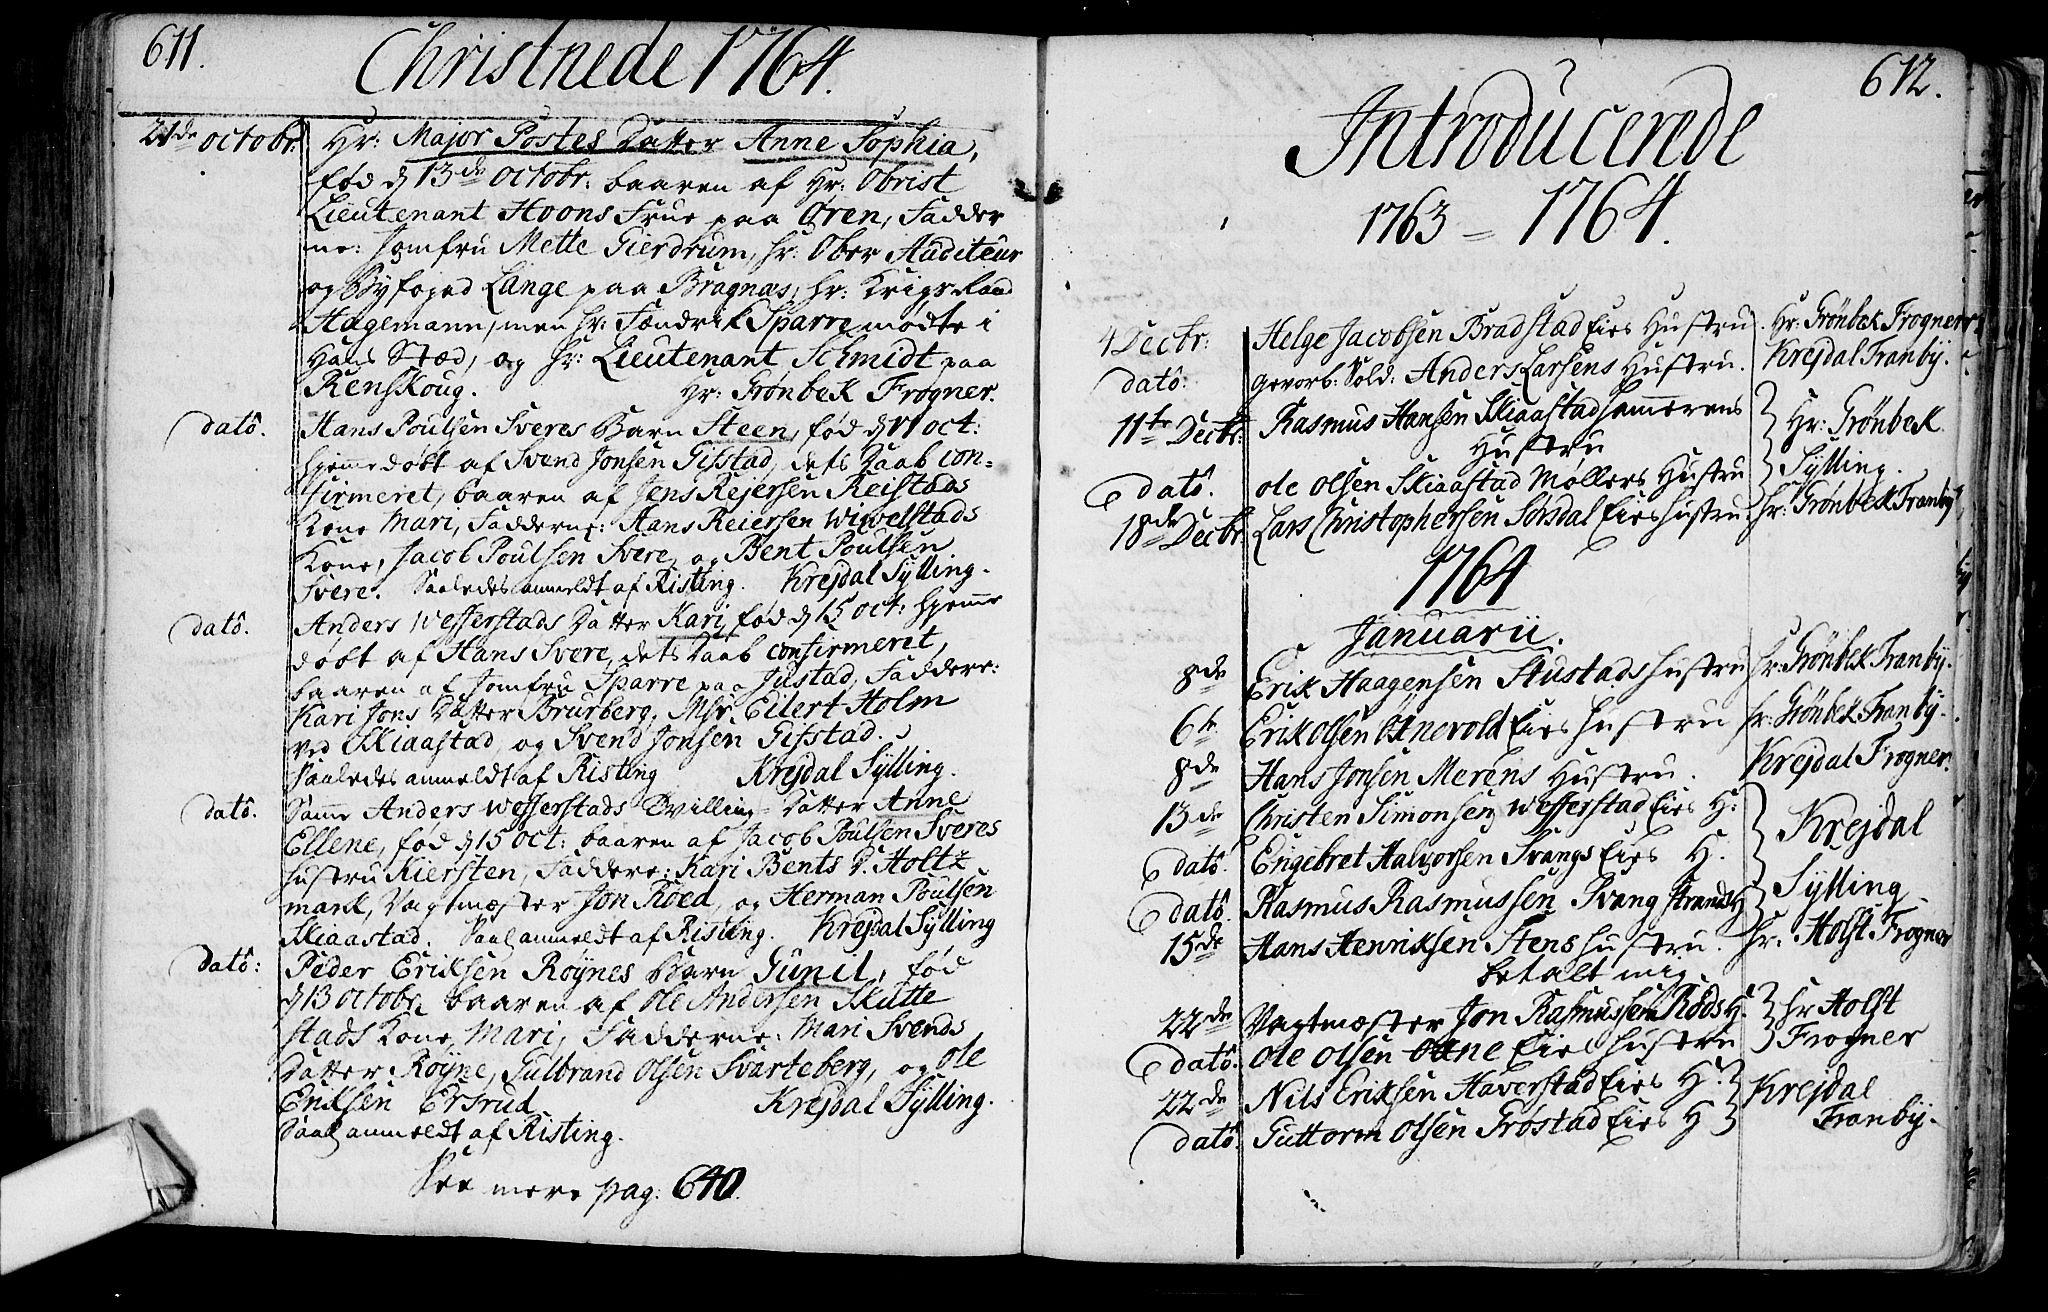 611.
Christnede 1764.
21de octobr: Hr: Major Postes Datter Anne Sophia,
fød d 13de octobr: baaren af Hr: Obrist
Lieutenant Hoons Frue paa Øren, Fadder
ne: Jomfru Mette Gierdrum, hr: Ober Auditeur
og Byfoged Lange paa Bragnæs, hr: Krigs Raad
Hagemann, men hr: Fændrik Sparre mødte i
Hans Stæd, og hr: Lieutenant Schmidt paa
Renskoug. Hr: Grönbek Frogner.
dato. Hans Poulsen Sveres Barn Steen, fød d 11 oct:
hjemedøbt af Svend Jonsen Gifstad, dets Daab con=
firmeret, baaren af Jens Rejersen Reistads
Kone Mari, Fadderne: Hans Reiersen Wiwelstads
Kone, Jacob Poulsen Svere, og Bent Poulsen
Svere. Saaledes anmeldt af Risting. Krejdal Sylling.
dato. Anders Wefferstads Datter Kari, fød d 15 oct: hjeme
døbt af Hans Svere, dets Daab confirmeret,
baaren af Jomfru Sparre paa Justad, Faddere:
Kari Jons Datter Brurberg, Msr. Eilert Holm
ved Skiaastad, og Svend Jonsen Gifstad.
Saaledes anmeldt af Risting Krejdal Sylling.
dato. Samme Anders Wefferstads Tvilling Datter Anne
Ellene, fød d 15 oct: baaren af Jacob Poulsen Sveres
hustru Kiersten, Faddere: Kari Bents D. Holtz
mark, Vagtmæster Jon Roed, og Herman Poulsen
Skiaastad. Saal anmeldt af Risting. Krejdal Sylling
dato: Peder Eriksen Røynes Barn Gunil, fød
d 13 octobr baaren af Ole Andersen Skutte
stads Kone, Mari, Fadderne: Mari Svends
Datter Røyne, Gulbrand Olsen Svarteberg, og Ole
Eriksen Ersrud Krejdal Sylling.
Saal anmeldt af Risting.
See mere pag: 640.
612.
Introducerede
1763 = 1764.
4 Decbr: Helge Jacobsen Bradstad Eies Hustru. Hr: Grönbek Frogner
dato: Gevorb: Sold: Anders Larsens Hustru. Krejdal Tranby.
11te Decbr: Rasmus Hansen Skiaastad
Hustru Hr: Grönbek
dato. Ole Olsen Skiaastad Møllers Hustru Sylling.
18de Decbr Lars Christophersen Sørsdal Eies hustru. hr: Grönbek Tranby
1764
Januarii.
8de Erik Haagensen Stustads hustru hr: Grönbek Tranby.
6te Erik Olsen Eies hustru hr: Grönbek Tranby.
8de Hans Jonsen Merens Hustru. Krejdal Frogner.
13de Christen Simonsen Wefferstad Eies H: Krejdal
dato. Engebret Halvorsen Svangs Eies H.
dato. Rasmus Rasmussen Svang Strands H Sylling.
15de Hans Henriksen Stens hustru. hr: Holst Frogner
betalt mig
22de Vagtmæster Jon Rasmussen Röds H. hr Holst
dato. Ole Olsen Eies hustru Frogner
22de Nils Eriksen Haverstad Eies H. Krejdal
dato. Guttorm Olsen Grøstad Eies H Tranby.